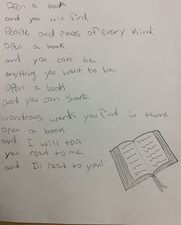 Open a book
and you will find,
People and places of every kind;
Open a book
and you can be,
anything you want to be;
Open a book
and you can share
Wondrous words you find in there
Open a book
and I will too,
you read to me
and I'll read to you!